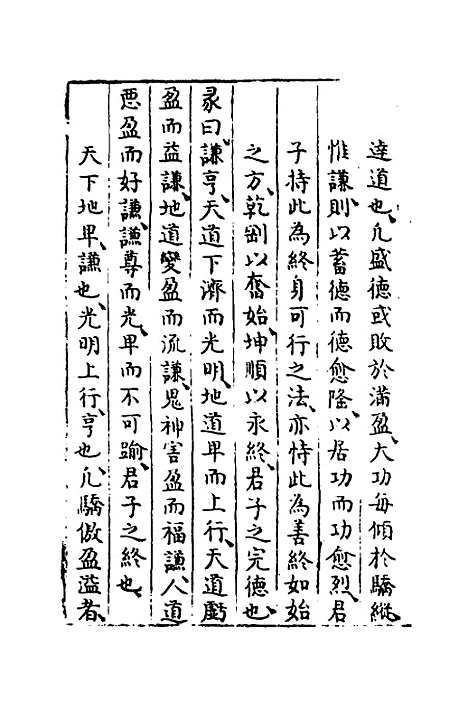 達道也、凡盛德或敗於滿盈、大功每傾於驕縱、
惟謙則以蓄德而德愈隆、以居功而功愈烈、君
子持此為終身可行之法、亦恃此為善終如始
之方、乾剛以奮始、坤順以永終、君子之完德也、
彖曰、謙亨、天道下濟而光明、地道卑而上行、天道虧
盈而益謙、地道變盈而流謙、鬼神害盈而福謙、人道
惡盈而好謙、謙尊而光、卑而不可踰、君子之終也、
天下地卑、謙也、光明上行、亨也、凡驕傲盈溢者、